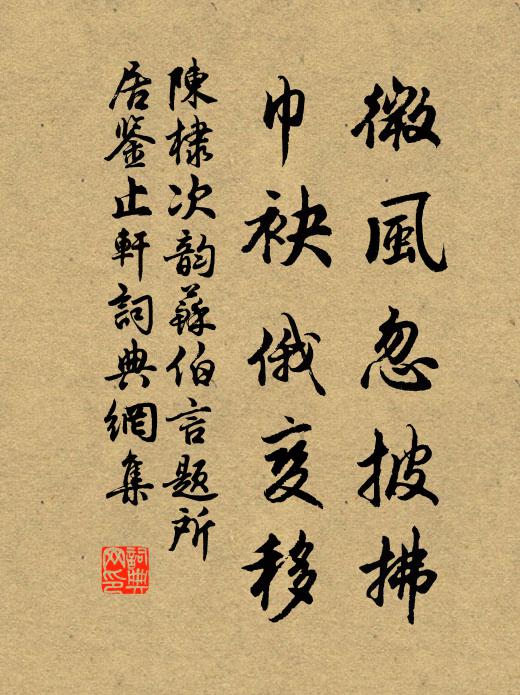 微風忽披拂
巾袂俄变移
陳棣次韵蘇伯言題所
居鉴止軒詞典網集
詞典
网印